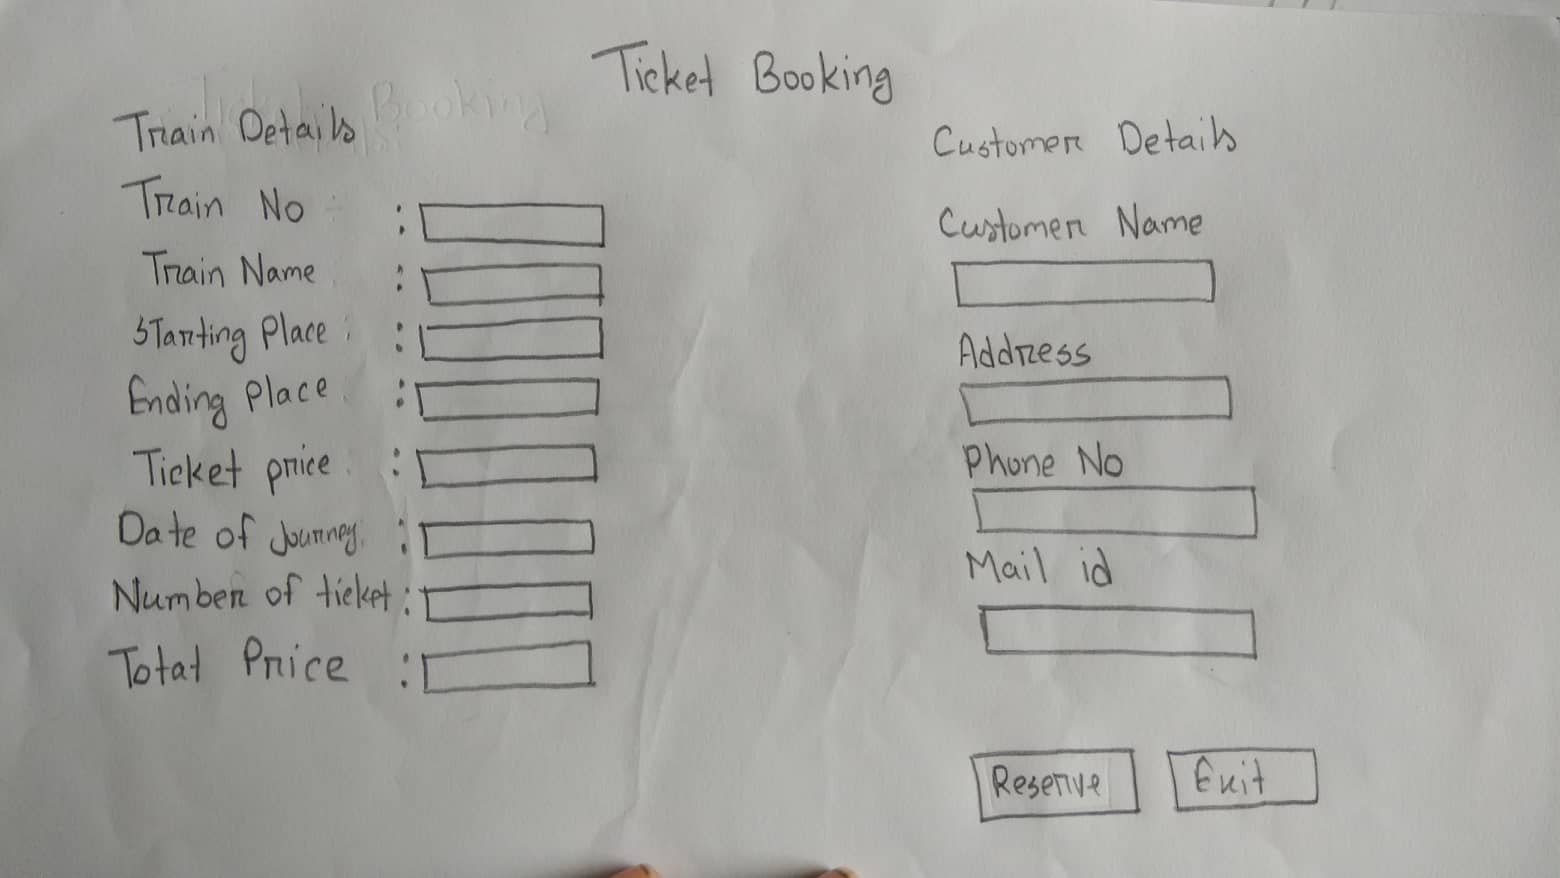 Ticket Booking
Train Details
Train No :
Train Name :
Starting Place :
Ending Place :
Ticket price :
Date of Journey :
Number of ticket :
Total Price :
Customer Details
Customer Name
Address
Phone No
Mail id
Reserve
Exit